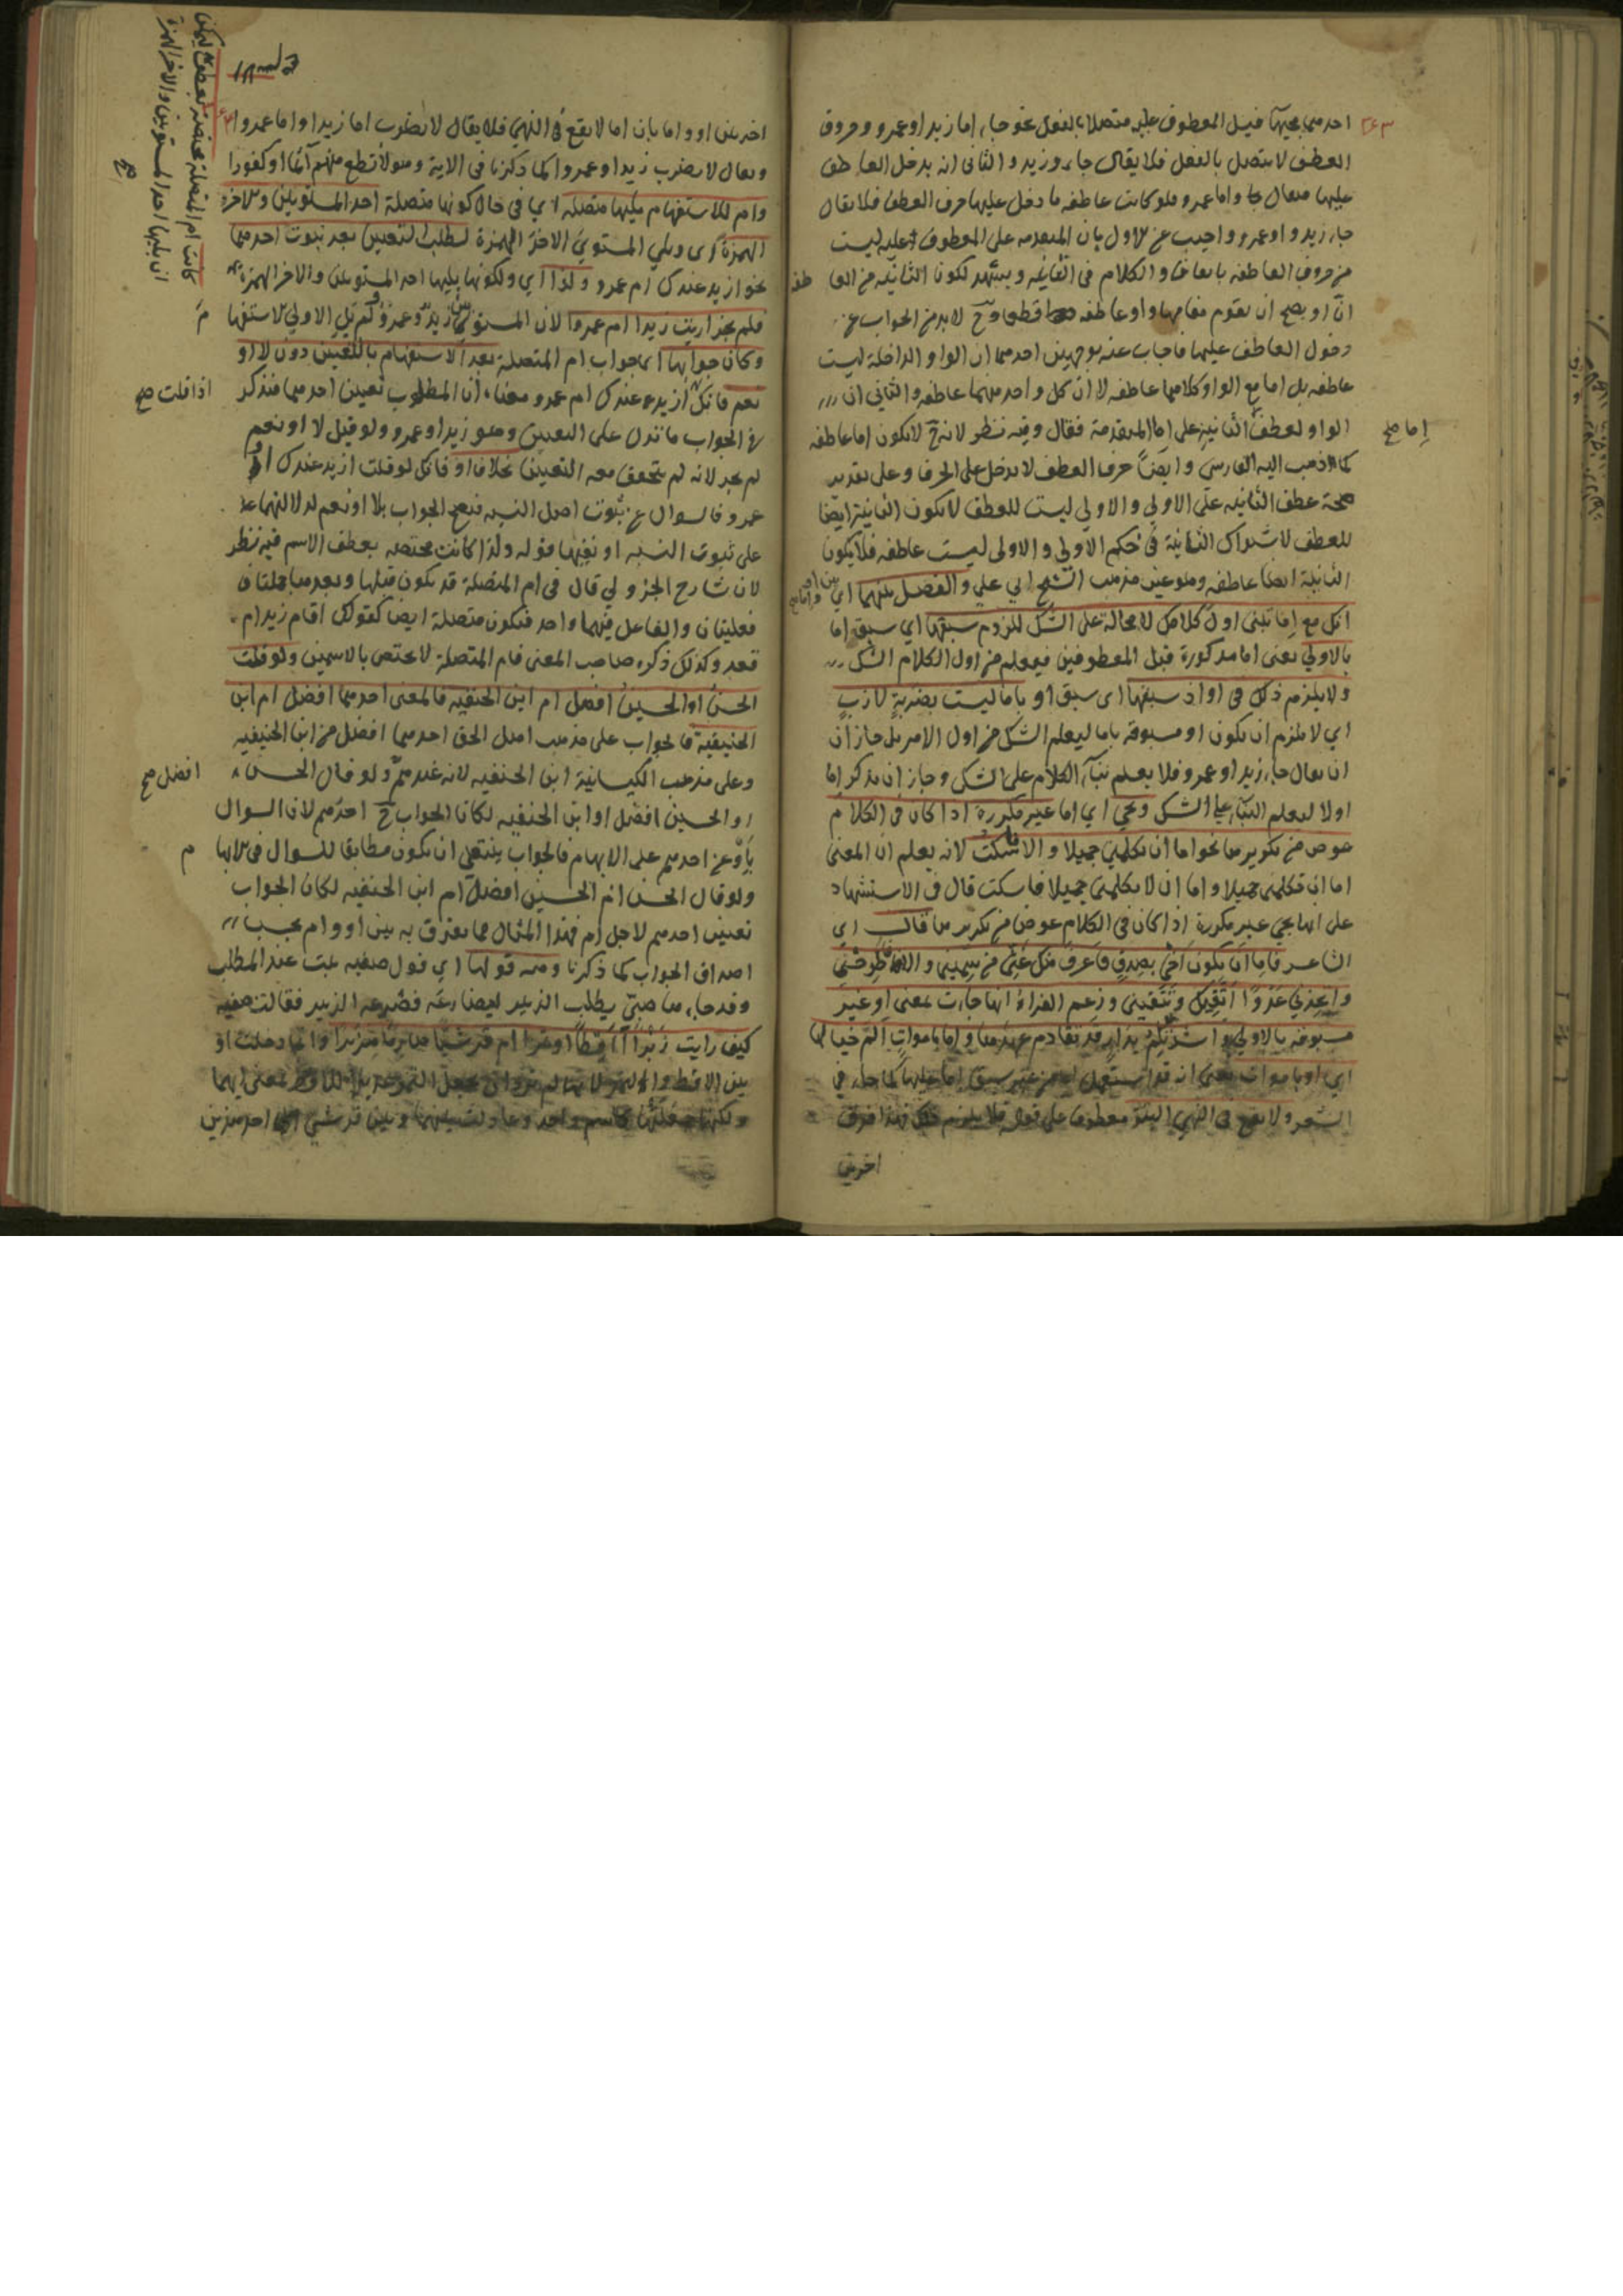 احدهما مجيها قبيل المعطوف عليه متصلا بالفعل نحو جاء اما زيد او عمرو وحروف
العطف لا تتصل بالفعل فلا يقال جاء وزيد والثاني انه يدخل العاطف
عليها فيقال واما عمرو فلو كانت عاطفه ما دخل عليها حرف العطف فلا يقال
جاء زيد واو عمرو واجيب عن الاول بان المتقدمه على المعطوف عليه ليست
من حروف العاطفه باتفاق والكلام في الثانيه ويشهد لكون الثانيه من العاطفه
ان او يصح ان يقوم مقامها واو عاطفه قطعا وح لا بد من الجواب عن
دخول العاطف عليها فاجاب عنه بوجهين احدهما ان الواو الداخلة ليست
عاطفه بل اما مع الواو كلاهما عاطفه لا ان كل واحد منهما عاطفه والثاني ان
الواو لعطف الثانية على اما المتقدمة فقال وفيه نظر لانه ح لا يكون اما عاطفه
اما صح
كما ذهب اليه الفارسي وايضا حرف العطف لا يدخل على الحرف وعلى تقدير
صحة عطف الثانيه على الاولى والاولى ليست للعطف لا يكون الثانية ايضا
للعطف لاشتراك الثانية في حكم الاولى والاولى ليست عاطفه فلا يكون
الثانية ايضا عاطفه وهو عين مذهب الشيخ ابي علي والفصل بينهما اي بين او واما صح
انك مع اما تبنى اول كلامك لا محالة على الشك للزوم سبقها اي سبق اما
بالاولى يعنى اما مذكورة قبل المعطوفين فيعلم من اول الكلام الشك
ولا يلزم ذلك في او اذ سبقها اى سبق او باما ليست بضربة لازب
اي لا يلزم ان يكون او مسبوقة باما ليعلم الشك من اول الامر بل جاز ان
ان يقال جاء زيد او عمرو فلا يعلم بناء الكلام على الشك وجاز ان يذكر اما
اولا ليعلم البناء على الشك وتجي اي اما غير مكررة اذا كان في الكلام
عوض من تكريرها نحو اما ان تكلمني جميلا والا فاسكت لانه يعلم ان المعنى
اما ان تكلمنى جميلا واما ان لا تكلمنى جميلا فاسكت قال في الاستشهاد
على انها تجي غير مكررة اذا كان في الكلام عوض من تكريرها قال اي
الشاعر فاما ان تكون اخي بصدق فاعرف منك غثي من سميني والا فاطرحني
واتخذني عدوا اتقيك وتتقيني وزعم الفراء انها جاءت بمعنى او غير
مسبوقه بالاولى وانشد تلم بدار قد تقادم عهدها واما باموات الم خيالها
اي او باموات يعنى انه قد استعمل من غير سبق اما عليها كما جاء في
الشعر ولا تقع في النهي البتة معطوف على قوله فلا يلزم فهذا فرق
اخر بين
اخر بين او واما بان اما لا يقع في النهي فلا يقال لا تضرب اما زيدا واما عمروا
ويقال لا تضرب زيدا او عمروا كما ذكرنا في الاية وهو لا تطع منهم آثما او كفورا
وام للاستفهام يليها متصلة اي في حال كونها متصلة احد المستويين والاخر
الهمزة اى ويلي المستوي الاخر الهمزة لطلب التعيين بعد ثبوت احدهما
نحو ازيد عندك ام عمرو ولذا اي ولكونها يليها احد المستويين والاخر الهمزة
فلم يجز اريت زيدا ام عمروا لان المستويين زيد وعمرو ولم تل الاولى الاستفهام
وكان جوابها اى جواب ام المتصلة بعد الاستفهام بالتعيين دون لا او
نعم فانك ازيد عندك ام عمرو معناه ان المطلوب تعيين احدهما فتذكر
اذا قلت صح
في الجواب ما تدل على التعيين وهو زيد او عمرو ولو قيل لا او نعم
لم يجد لانه لم يتحقق معه التعيين بخلاف او فانك لو قلت ازيد عندك او
عمرو فالسوال عن ثبوت اصل النسبه فيصح الجواب بلا او نعم لدلالتهما
على ثبوت النسبه او نفيها قوله ولذا كانت مختصه بعطف الاسم فيه نظر
لان شارح الجزولي قال في ام المتصلة قد يكون قبلها وبعدها جملتان
فعليتان والفاعل فيهما واحد فيكون متصلة ايضا كقولك اقام زيد ام
قعد وكذلك ذكره صاحب المغنى فام المتصلة لا يختص بالاسمين ولو قلت
الحسن او الحسين افضل ام ابن الحنفيه فالمعنى احدهما افضل ام ابن
الحنيفية فالجواب على مذهب اهل الحق احدهما افضل من ابن الحنيفيه
وعلى مذهب الكيسانية ابن الحنفيه لانه عندهم ولو قال الحسن
افضل صح
او الحسين افضل او ابن الحنفيه لكان الجواب ح احدهم لان السوال
باو عن احدهم على الابهام فالجواب ينبغي ان يكون مطابقا للسوال في الابهام
ولو قال الحسن ام الحسين افضل ام ابن الحنفيه لكان الجواب
تعيين احدهم لاجل ام فهذا المثال مما يفترق به بين او وام بحسب
اصداق الجواب كما ذكرنا ومنه قولها اي قول صفيه بنت عبد المطلب
وقد جاء صبي يطلب الزبير ليصارعه فصرعه الزبير فقالت صفيه
كيف رايت زبرا اقطا او تمرا ام قرشيا صارما هزبرا وانما دخلت او
بين الاقط والتمر لانها لم ترد ان تجعل التمر عديلا للاقط بمعنى ايهما
ولكنها جعلتهما كاسم واحد وعادلت بينهما وبين قرشي اي احد هذين
كانت ام المتصلة مختصة بعطف
ان يليها احد المستويين والاخر الهمزة
صح